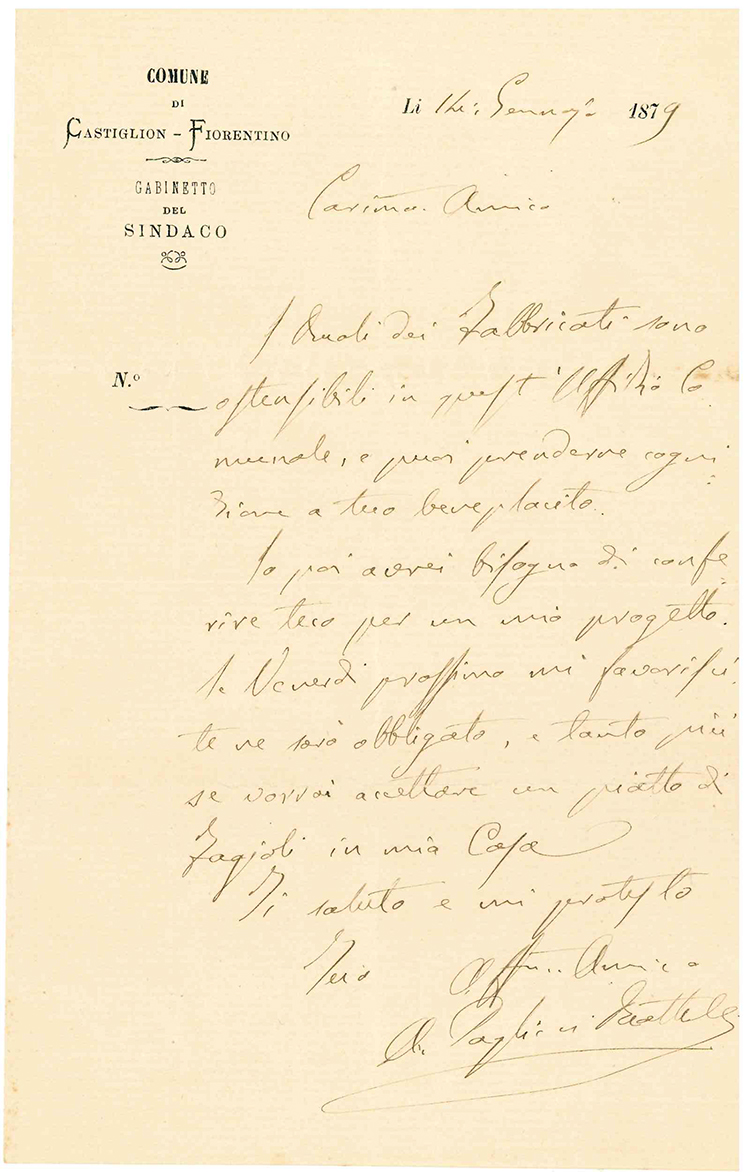 COMUNE
DI
CASTIGLION - FIORENTINO
GABINETTO
DEL
SINDACO
Li 14: Gennajo 1879
Carissmo. Amico
N.º
I Ruoli dei Fabbricati sono
ostensibili in quest' Uffizio Co
munale, e puoi prenderne cogni
zione a tuo beneplacito.
Io poi avrei bisogno di confe
rire teco per un mio progetto.
Se Venerdì prossimo mi favorisci
te ne sarò obbligato, e tanto più
se vorrai accettare un piatto di
Fagjoli in mia Casa
Ti saluto e mi protesto
Tuo Affmo. Amico